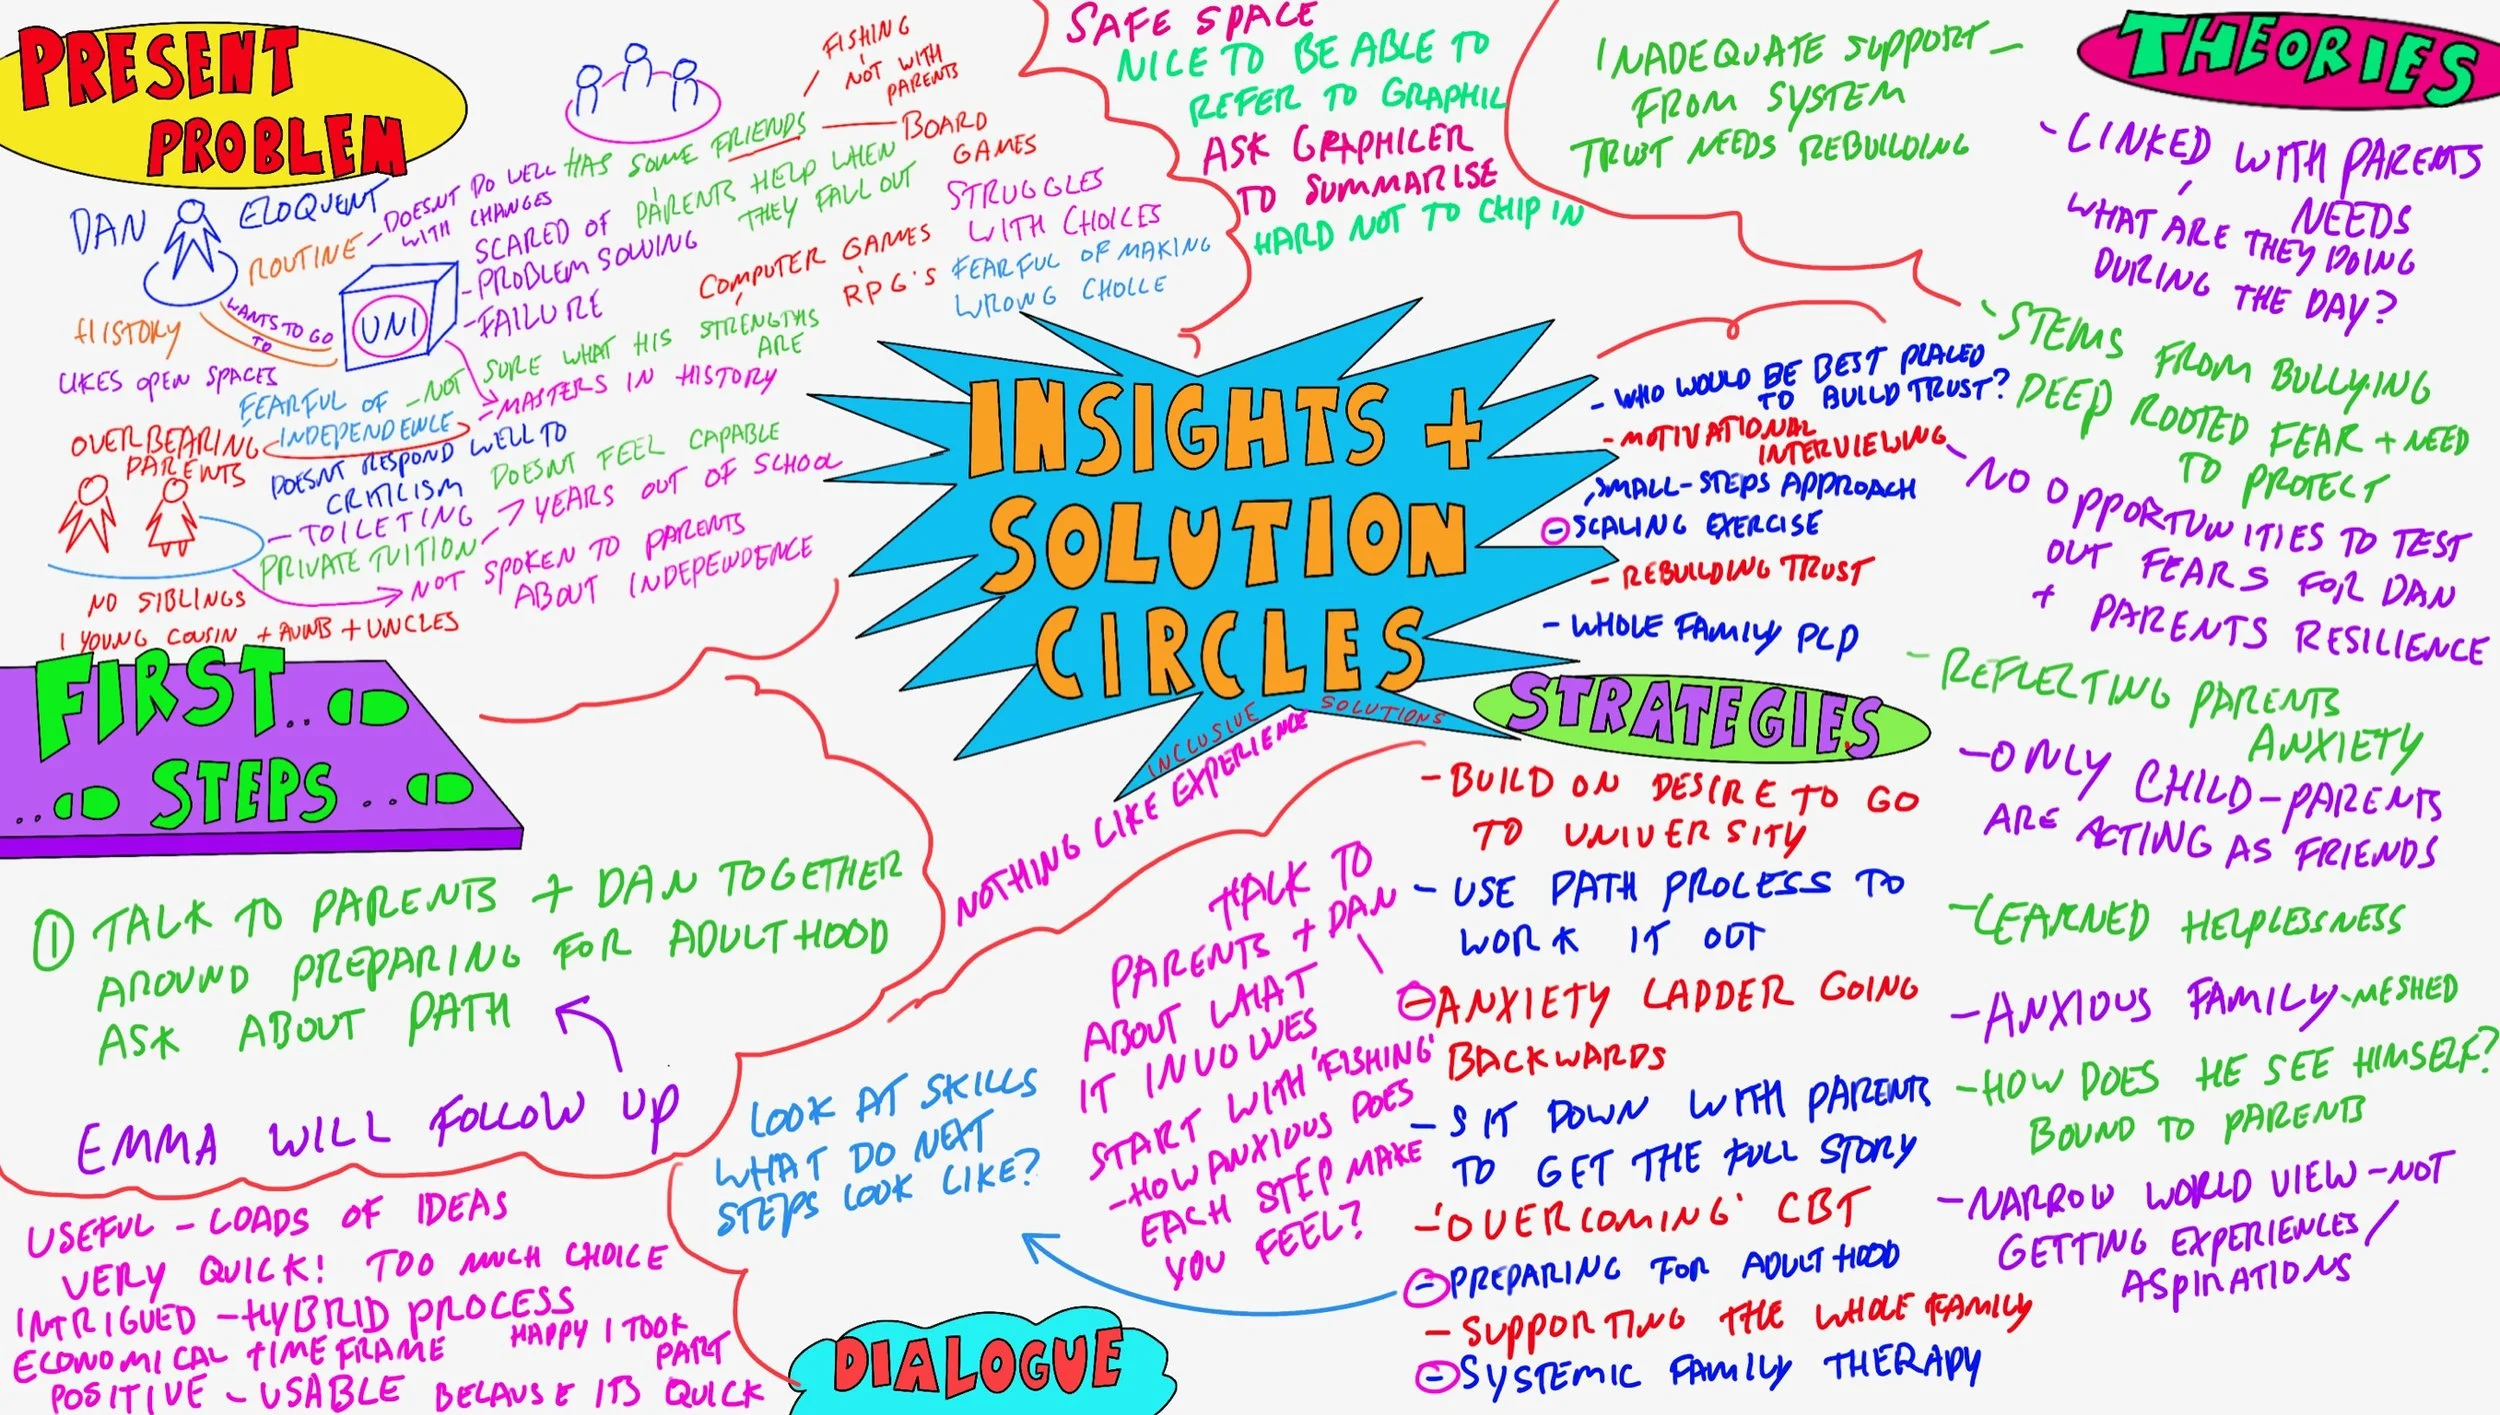 PRESENT
PROBLEM
DAN
ELOQUENT
ROUTINE
- DOESNT DO WELL
WITH CHANGES
HAS SOME FRIENDS
FISHING
NOT WITH
PARENTS
BOARD
GAMES
PARENTS HELP WHEN
THEY FALL OUT
SCARED OF
- PROBLEM SOLVING
- FAILURE
COMPUTER GAMES
RPG'S
STRUGGLES
WITH CHOICES
FEARFUL OF MAKING
WRONG CHOICE
WANTS TO GO
TO
UNI
HISTORY
LIKES OPEN SPACES
- NOT SURE WHAT HIS STRENGTHS
ARE
- MASTERS IN HISTORY
FEARFUL OF
INDEPENDENCE
OVERBEARING
PARENTS
DOESNT RESPOND WELL TO
CRITICISM
DOESNT FEEL CAPABLE
- TOILETING
PRIVATE TUITION
- 7 YEARS OUT OF SCHOOL
NOT SPOKEN TO PARENTS
ABOUT INDEPENDENCE
NO SIBLINGS
1 YOUNG COUSIN + AUNTS + UNCLES
FIRST..
..STEPS..
① TALK TO PARENTS + DAN TOGETHER
AROUND PREPARING FOR ADULTHOOD
ASK ABOUT PATH
EMMA WILL FOLLOW UP
USEFUL - LOADS OF IDEAS
VERY QUICK! TOO MUCH CHOICE
INTRIGUED - HYBRID PROCESS
ECONOMICAL TIME FRAME
HAPPY I TOOK
PART
POSITIVE - USABLE BECAUSE ITS QUICK
SAFE SPACE
NICE TO BE ABLE TO
REFER TO GRAPHIC
ASK GRAPHICER
TO SUMMARISE
HARD NOT TO CHIP IN
INSIGHTS +
SOLUTION
CIRCLES
INCLUSIVE SOLUTIONS
NOTHING LIKE EXPERIENCE
INADEQUATE SUPPORT -
FROM SYSTEM
TRUST NEEDS REBUILDING
THEORIES
- LINKED WITH PARENTS
NEEDS
WHAT ARE THEY DOING
DURING THE DAY?
- STEMS FROM BULLYING
DEEP ROOTED FEAR + NEED
TO PROTECT
- NO OPPORTUNITIES TO TEST
OUT FEARS FOR DAN
+ PARENTS RESILIENCE
- REFLECTING PARENTS
ANXIETY
- ONLY CHILD - PARENTS
ARE ACTING AS FRIENDS
- LEARNED HELPLESSNESS
- ANXIOUS FAMILY - MESHED
- HOW DOES HE SEE HIMSELF?
BOUND TO PARENTS
- NARROW WORLD VIEW - NOT
GETTING EXPERIENCES/
ASPIRATIONS
- WHO WOULD BE BEST PLACED
TO BUILD TRUST?
- MOTIVATIONAL
INTERVIEWING
- SMALL-STEPS APPROACH
- SCALING EXERCISE
- REBUILDING TRUST
- WHOLE FAMILY PLP
STRATEGIES
- BUILD ON DESIRE TO GO
TO UNIVERSITY
- USE PATH PROCESS TO
WORK IT OUT
- ANXIETY LADDER GOING
BACKWARDS
- SIT DOWN WITH PARENTS
TO GET THE FULL STORY
- 'OVERCOMING' CBT
- PREPARING FOR ADULTHOOD
- SUPPORTING THE WHOLE FAMILY
- SYSTEMIC FAMILY THERAPY
TALK TO
PARENTS + DAN
ABOUT WHAT
IT INVOLVES
START WITH 'FISHING'
- HOW ANXIOUS DOES
EACH STEP MAKE
YOU FEEL?
LOOK AT SKILLS
WHAT DO NEXT
STEPS LOOK LIKE?
DIALOGUE